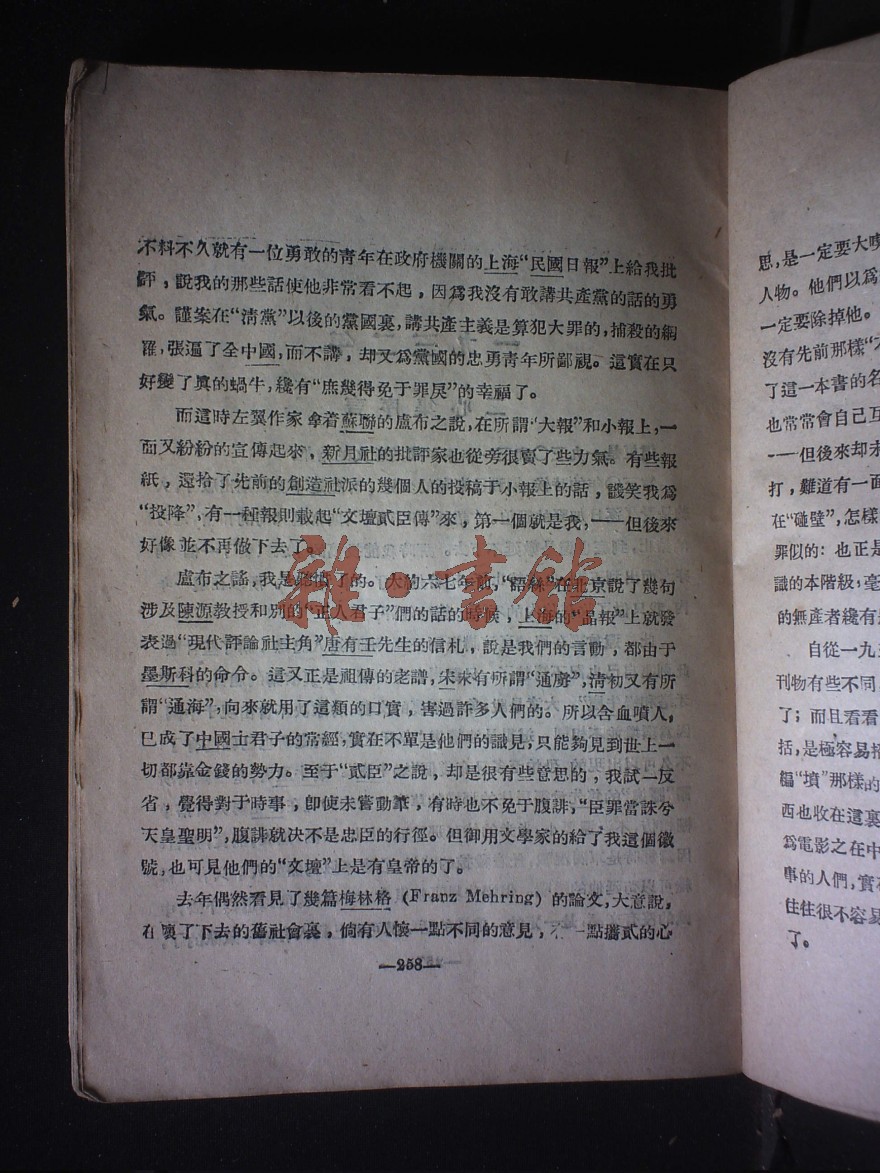 不料不久就有一位勇敢的靑年在政府機關的上海“民國日報”上給我批
評，說我的那些話使他非常看不起，因爲我沒有敢講共產黨的話的勇
氣。謹案在“淸黨”以後的黨國裏，講共產主義是算犯大罪的，捕殺的網
羅，張遍了全中國，而不講，却又爲黨國的忠勇靑年所鄙視。這實在只
好變了眞的蝸牛，纔有“庶幾得免于罪戾”的幸福了。
而這時左翼作家拿着蘇聯的盧布之說，在所謂“大報”和小報上，一
面又紛紛的宣傳起來，新月社的批評家也從旁很賣了些力氣。有些報
紙，還拾了先前的創造社派的幾個人的投稿于小報上的話，譏笑我爲
“投降”，有一種報則載起“文壇貳臣傳”來，第一個就是我，——但後來
好像並不再做下去了。
盧布之謠，我是聽慣了的。大約六七年前，“語絲”在北京說了幾句
涉及陳源教授和別的“正人君子”們的話的時候，上海的“晶報”上就發
表過“現代評論社主角”唐有壬先生的信札，說是我們的言動，都由于
墨斯科的命令。這又正是祖傳的老譜，宋末有所謂“通虜”，淸初又有所
謂“通海”，向來就用了這類的口實，害過許多人們的。所以含血噴人，
已成了中國士君子的常經，實在不單是他們的識見，只能夠見到世上一
切都靠金錢的勢力。至于“貳臣”之說，却是很有些意思的，我試一反
省，覺得對于時事，卽使未嘗動筆，有時也不免于腹誹，“臣罪當誅兮
天皇聖明”，腹誹就決不是忠臣的行徑。但御用文學家的給了我這個徽
號，也可見他們的“文壇”上是有皇帝的了。
去年偶然看見了幾篇梅林格 (Franz Mehring) 的論文，大意說，
在壞了下去的舊社會裏，倘有人懷一點不同的意見，一點攜貳的心
—258—
思，是一定要大
人物。他們以爲
一定要除掉他。
沒有先前那樣“
了這一本書的名
也常常會自己互
——但後來却未
打，難道有一面
在“碰壁”，怎樣
罪似的：也正是
識的本階級，毫
的無產者纔有
自從一九
刊物有些不同，
了；而且看看
括，是極容易招
編“墳”那樣的
西也收在這裏
爲電影之在中
事的人們，實
往往很不容易
了。
雜·書館